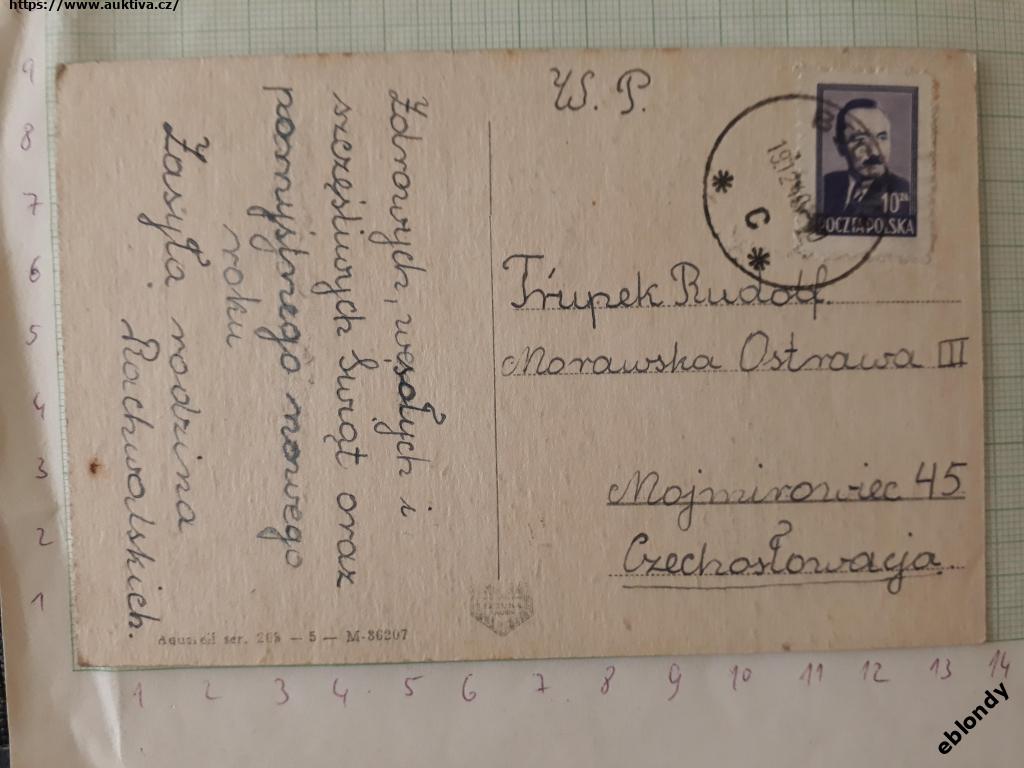 https://www.auktiva.cz/
Zdrowych, wesołych i
szczęśliwych Swiąt oraz
pomyślnego nowego
roku
Zasyła rodzina
Rachwalskich.
W. P.
Trupek Rudolf.
Morawska Ostrawa III
Mojmirowiec 45
Czechosłowacja.
10zł
POCZTA POLSKA
C
ser. 5 - M-86207
9
8
7
6
5
4
3
2
1
1 2 3 4 5 6 7 8 9 10 11 12 13 14
eblondy